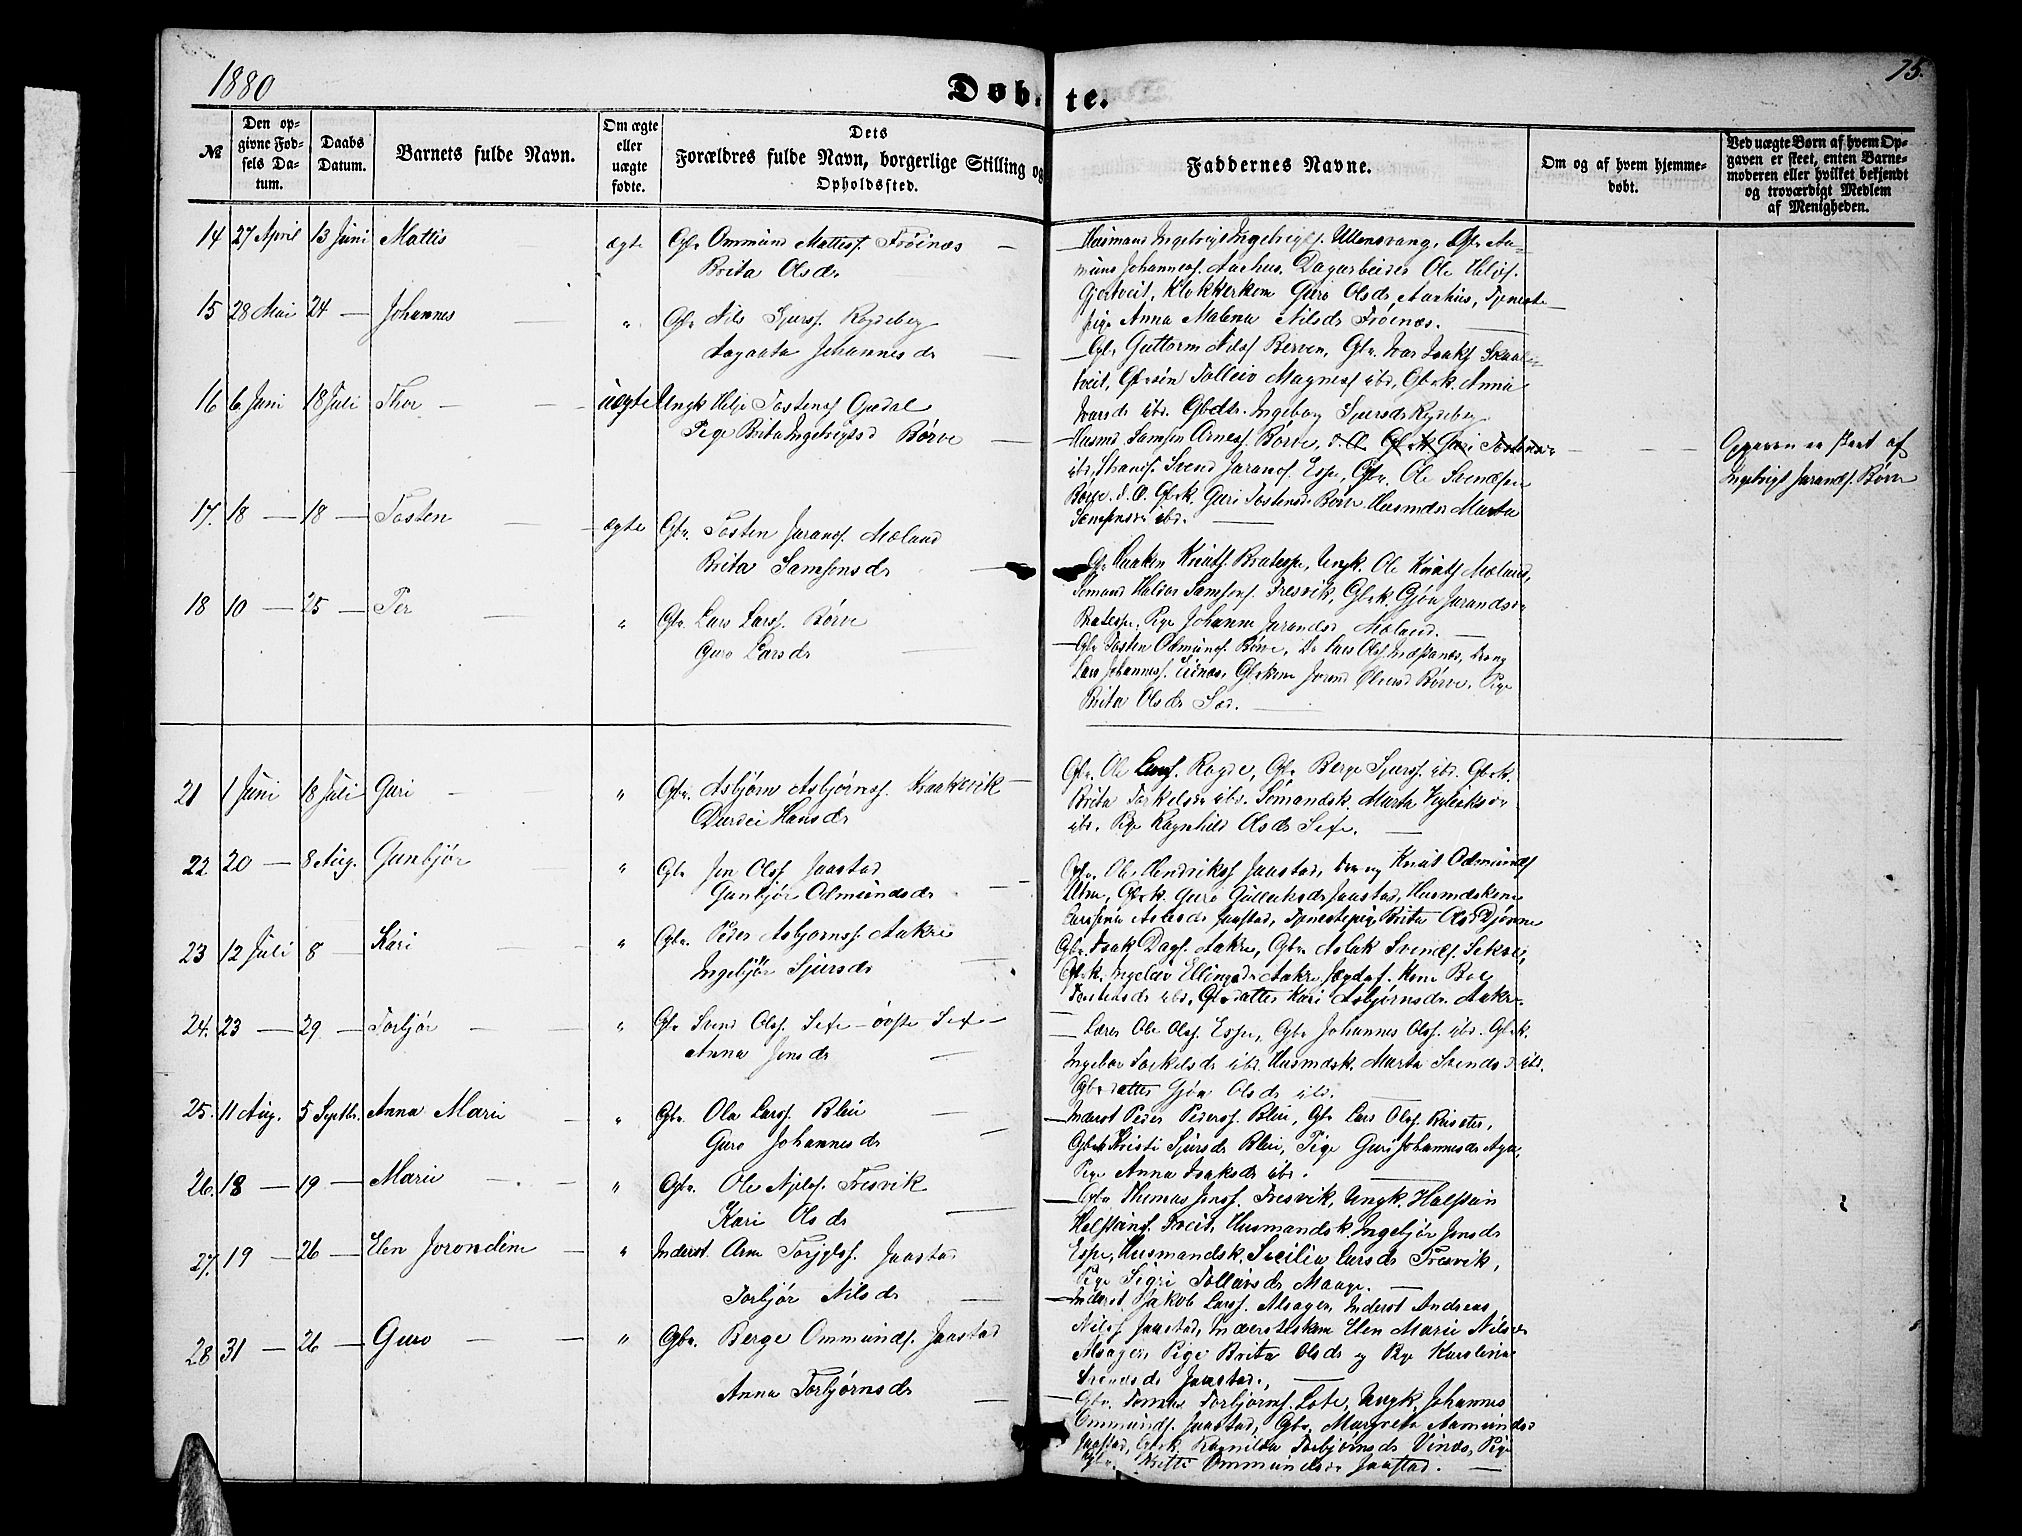 1880
Døbte.
75.
№
Den op-
givne Fød-
sels Da-
tum.
Daabs
Datum.
Barnets fulde Navn.
Om ægte
eller
uægte
fødte.
Dets
Forældres fulde Navn, borgerlige Stilling og
Opholdssted.
Faddernes Navne.
Om og af hvem hjemme-
døbt.
Ved uægte Børn af hvem Op-
gaven er skeet, enten Barne-
moderen eller hvilket bekjendt
og troværdigt Medlem
af Menigheden.
14 27 April 13 Juni Mattis ægte Gbr Ommund Mattess. Frøinæs
Brita Olsdr
Husmand Ingebrigt Ingebrigts. Ullensvang, Gbr Aa-
muns Johanness. Aarhus, Dagarbeider Ole
Gjertveit, Klokkerkone Guro Olsdr Aarhus, Tjeneste-
pige Anna Malena Nilsdr Frøenæs.
15 28 Mai 24 — Johannes — " Gbr Nils Sjurss. Rogdeberg
Johannesdr
Gbr Guttorm Nilss Berven, Gbr Ivar Isaks Skaal-
tveit, Gbrsøn Tolleiv Magness ibd, Gbrk. Anna
Ivarsdr ibd. Gbdtr. Ingeborg Sjursdr
16 6 Juni 18 Juli Thor — uægte Ungk Helje Tostens Opedal
Pige Brita Ingebrigtsd Børve
Husmd Samson Arness. Børve, Gbrk Guri Tostensdr
ibd, Svend Jarands. Espe, Gbr. Ole Svendsen
Børve. Gbrk. Guri Tostensd Børve Husmdsk Marta
Samsonsdr ibd.
Opgaven er skeet af
Ingebrigt Jarands. Børve
17. 18 — 18 — Tosten — ægte Gbr. Tosten Jarands. Mæland
Brita Samsonsdr
Gbr Haaken Knuts. Bratespe, Ungk. Ole Knuts Mæland,
Sømand Haldor Samsons. Fresvik, Gbrk. Gjøa Jarandsdr
Bratespe, Pige Johanna Jarandsd Mæland.
18 10 — 25 — Per — " Gbr. Lars Larss. Børve
Guro Larsdr
Gbr Tosten Odmunds. Børve, Do Lars Olss. Dreng
Lars Johanness. Gbrkone Børve. Pige
Brita Olsdr
21 1 Juni 18 Juli Guri — " Gbr. Asbjørn Asbjørnss. Kraakevik
Durdei Hansdr
Gbr. Ole Larss. Rogde, Gbr Berge Sjurss. ibd. Gbrk.
Brita Torkelsdr ibd. Sømandsk. Marta
ibd. Pige Ragnhild Olsdr Sexe.
22. 20 — 8 Aug. Gunbjør " Gbr Jon Olss. Jaastad
Gunbjør Odmundsdr
Gbr. Ole Hendrikss Jaastad, Dreng Knut Odmunds
Utne, Gbrk. Guro Gulleiksdr Jaastad, Husmdskone
Aslesdr Jaastad, Tjenestepige Brita Olsd Djønne
23 12 Juli 8 — Kari " Gbr. Peder Asbjørnss. Aakre
Ingebjør Sjursdr
Gbr. Isak Dags. Aakre, Gbr Aslak Svends. Sekse,
Gbrk. Ellingsdr Aakre,
Tostensdr ibd, Gbrdatter Kari Asbjørnsdr Aakre.
24. 23 — 29 — Torbjør — " Gbr Svend Olss. Sexe — øvste Sexe —
Anna Jonsdr
Lærer Ole Olss. Espe, Gbr Johannes Olss. ibd. Gbrk.
Ingebor Torkelsdr ibd. Husmdsk. Marta Svendsd ibd.
Gbrdatter Gjøa Olsdr ibd.
25. 11 Aug. 5 Septbr. Anna Marie — " Gbr. Ole Larss. Bleie
Guro Johannesdr
Inderst Peder Pederss. Bleie, Gbr Lars Olss.
Gbrk Kristi Sjursdr Bleie, Pige Guro Johannesdr Aga,
Pige Anna Isaksdr ibd.
26. 18 — 19 — Marie — " Gbr. Ole Fresvik
Kari Olsdr
Gbr Thomas Jonss. Fresvik, Ungk. Halstein
Halsteins. Tveit, Husmandsk. Ingebjør Jonsdr
Espe, Husmandsk. Sicilia Larsdr Fresvik,
Pige Sigri Tolleivsdr Maage.
27. 19 — 26 — Elen Jorondine — " Inderst. Arne Jaastad
Torbjør Nilsdr
Inderst Jakob Larss. Alsager, Inderst Andreas
Nilss Jaastad, Inderstekone Elen Marie Nilsdr
Alsager, Pige Brita Olsdr og Pige Karolina
Svendsdr Jaastad.
28 31 — 26 — Guro — " Gbr. Berge Ommunds. Jaastad
Anna Torbjørnsdr
Gbr. Tomas Torbjørns. Lote, Ungk. Johannes
Ommunds. Jaastad, Gbr. Margreta Aamundsdr
Jaastad, Gbrk. Ragnilda Torbjørnsdr Vinæs, Pige
Ommundsdr Jaastad.